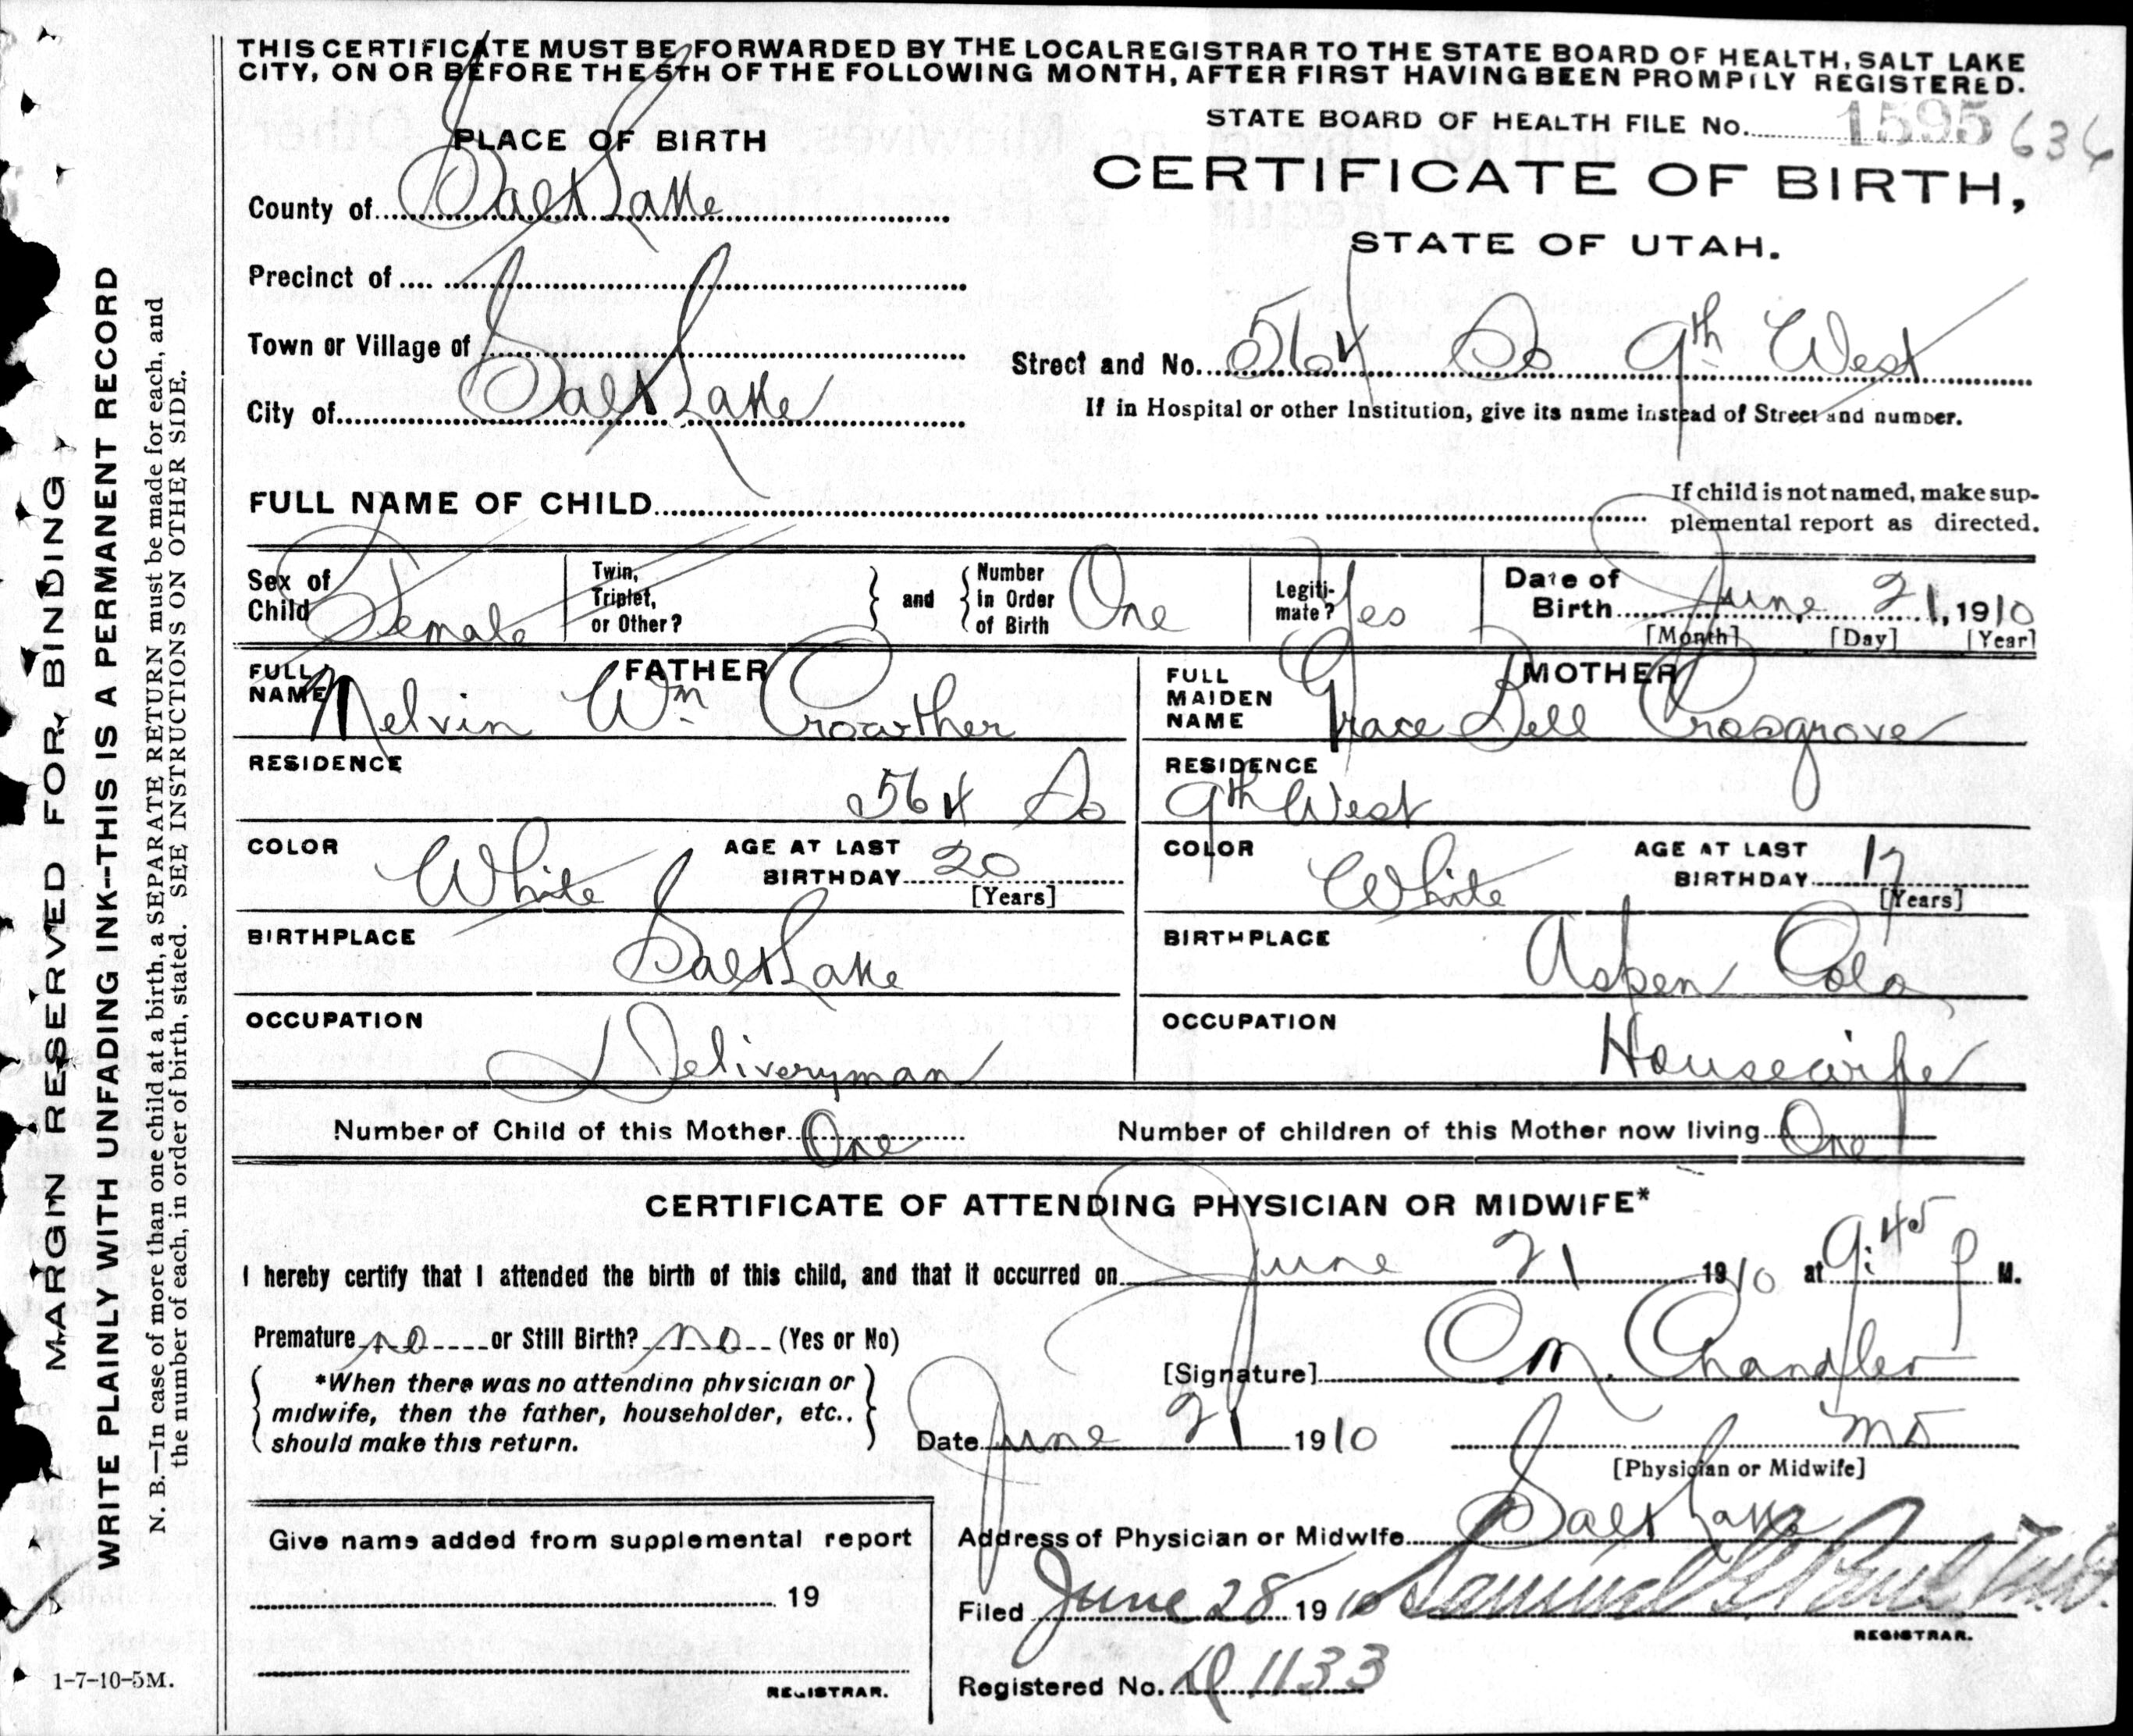 THIS CERTIFICATE MUST BE FORWARDED BY THE LOCAL REGISTRAR TO THE STATE BOARD OF HEALTH, SALT LAKE
CITY, ON OR BEFORE THE 5TH OF THE FOLLOWING MONTH, AFTER FIRST HAVING BEEN PROMPTLY REGISTERED.
STATE BOARD OF HEALTH FILE No. 1595 636
PLACE OF BIRTH
CERTIFICATE OF BIRTH,
STATE OF UTAH.
County of Salt Lake
Precinct of
Town or Village of
City of Salt Lake
Street and No. 564 So 9th West
If in Hospital or other Institution, give its name instead of Street and number.
FULL NAME OF CHILD
If child is not named, make sup-
plemental report as directed.
Sex of Child Female
Twin, Triplet, or Other? and Number in Order of Birth One
Legiti-mate? Yes
Date of Birth June 21, 1910
[Month] [Day] [Year]
FATHER
FULL NAME Melvin Wm Crowther
MOTHER
FULL MAIDEN NAME Grace Dell Crosgrove
RESIDENCE 564 So
RESIDENCE 9th West
COLOR White
AGE AT LAST BIRTHDAY 20 [Years]
COLOR White
AGE AT LAST BIRTHDAY 17 [Years]
BIRTHPLACE Salt Lake
BIRTHPLACE Aspen Colo
OCCUPATION Deliveryman
OCCUPATION Housewife
Number of Child of this Mother One
Number of children of this Mother now living One
CERTIFICATE OF ATTENDING PHYSICIAN OR MIDWIFE*
I hereby certify that I attended the birth of this child, and that it occurred on June 21 1910 at 9:45 P M.
Premature no or Still Birth? no (Yes or No)
*When there was no attending physician or
midwife, then the father, householder, etc.,
should make this return.
[Signature] C M. Chandler
Date June 21 1910
MD
[Physician or Midwife]
Address of Physician or Midwife Salt Lake
Give name added from supplemental report
19
REGISTRAR.
Filed June 28 1910 Samuel G. Paul M.D.
REGISTRAR.
Registered No. D 1133
MARGIN RESERVED FOR BINDING
WRITE PLAINLY WITH UNFADING INK--THIS IS A PERMANENT RECORD
N. B.—In case of more than one child at a birth, a SEPARATE RETURN must be made for each, and
the number of each, in order of birth, stated. SEE INSTRUCTIONS ON OTHER SIDE.
1-7-10-5M.